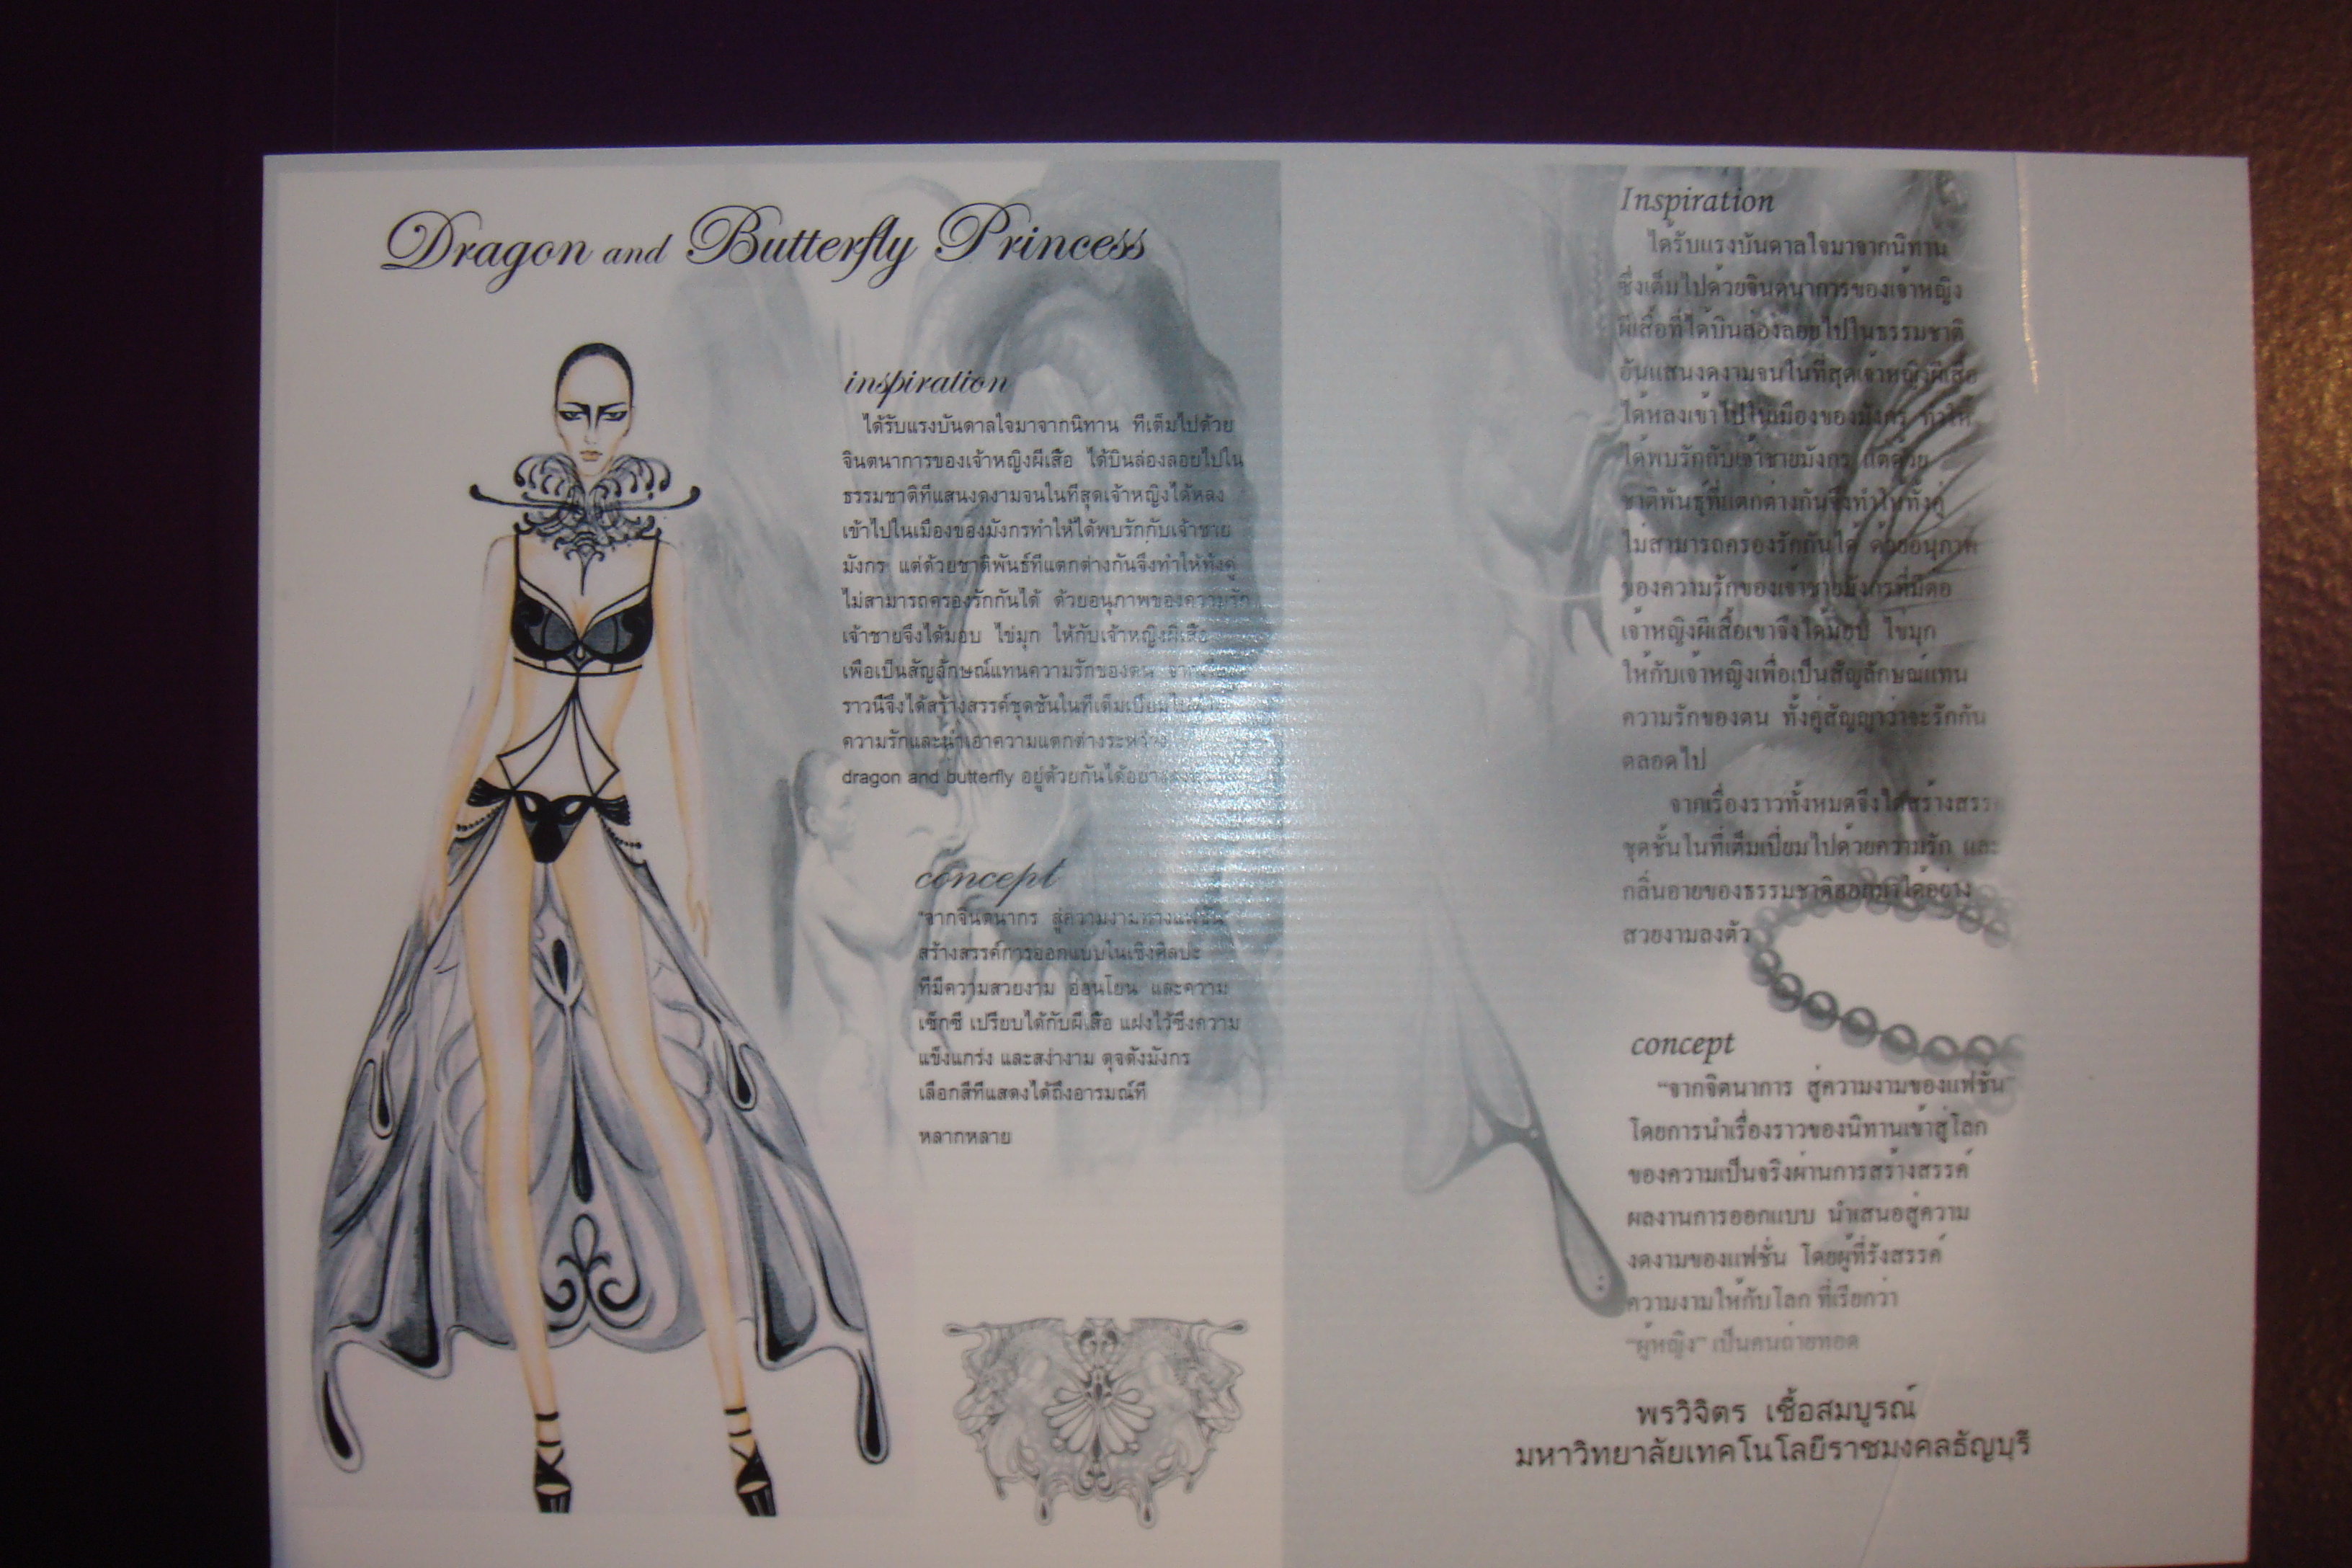 Dragon and Butterfly Princess
inspiration
ได้รับแรงบันดาลใจมาจากนิทาน ที่เต็มไปด้วย
จินตนาการของเจ้าหญิงผีเสื้อ ได้บินล่องลอยไปใน
ธรรมชาติที่แสนงดงามจนในที่สุดเจ้าหญิงได้หลง
เข้าไปในเมืองของมังกรทำให้ได้พบรักกับเจ้าชาย
มังกร แต่ด้วยชาติพันธ์ที่แตกต่างกันจึงทำให้ทั้งคู่
ไม่สามารถครองรักกันได้ ด้วยอนุภาพของความรัก
เจ้าชายจึงได้มอบ ไข่มุก ให้กับเจ้าหญิงผีเสื้อ
เพื่อเป็นสัญลักษณ์แทนความรักของตน
ราวนี้จึงได้สร้างสรรค์ชุดชั้นในที่เต็มเปี่ยม
ความรักและนำเอาความแตกต่างระหว่าง
dragon and butterfly อยู่ด้วยกันได้อย่าง
concept
"จากจินตนากร สู่ความงามทางแฟชั่น"
สร้างสรรค์การออกแบบในเชิงศิลปะ
ที่มีความสวยงาม อ่อนโยน และความ
เซ็กซี่ เปรียบได้กับผีเสื้อ แฝงไว้ซึ่งความ
แข็งแกร่ง และสง่างาม ดุจดั่งมังกร
เลือกสีที่แสดงได้ถึงอารมณ์ที่
หลากหลาย
Inspiration
ได้รับแรงบันดาลใจมาจากนิทาน
ซึ่งเต็มไปด้วยจินตนาการของเจ้าหญิง
ผีเสื้อที่ได้บินล่องลอยไปในธรรมชาติ
อันแสนงดงามจนในที่สุดเจ้าหญิงผีเสื้อ
ได้หลงเข้าไปในเมืองของมังกร ทำให้
ได้พบรักกับเจ้าชายมังกร แต่ด้วย
ชาติพันธุ์ที่แตกต่างกันจึงทำให้ทั้งคู่
ไม่สามารถครองรักกันได้ ด้วยอนุภาพ
ของความรักของเจ้าชายมังกรที่มีต่อ
เจ้าหญิงผีเสื้อเขาจึงได้มอบ ไข่มุก
ให้กับเจ้าหญิงเพื่อเป็นสัญลักษณ์แทน
ความรักของตน ทั้งคู่สัญญาว่าจะรักกัน
ตลอดไป
จากเรื่องราวทั้งหมดจึงได้สร้างสรร
ชุดชั้นในที่เต็มเปี่ยมไปด้วยความรัก และ
กลิ่นอายของธรรมชาติออกมาได้อย่าง
สวยงามลงตัว
concept
"จากจิตนาการ สู่ความงามของแฟชั่น"
โดยการนำเรื่องราวของนิทานเข้าสู่โลก
ของความเป็นจริงผ่านการสร้างสรรค์
ผลงานการออกแบบ นำเสนอสู่ความ
งดงามของแฟชั่น โดยผู้ที่รังสรรค์
ความงามให้กับโลก ที่เรียกว่า
"ผู้หญิง" เป็นคนถ่ายทอด
พรวิจิตร เชื้อสมบูรณ์
มหาวิทยาลัยเทคโนโลยีราชมงคลธัญบุรี